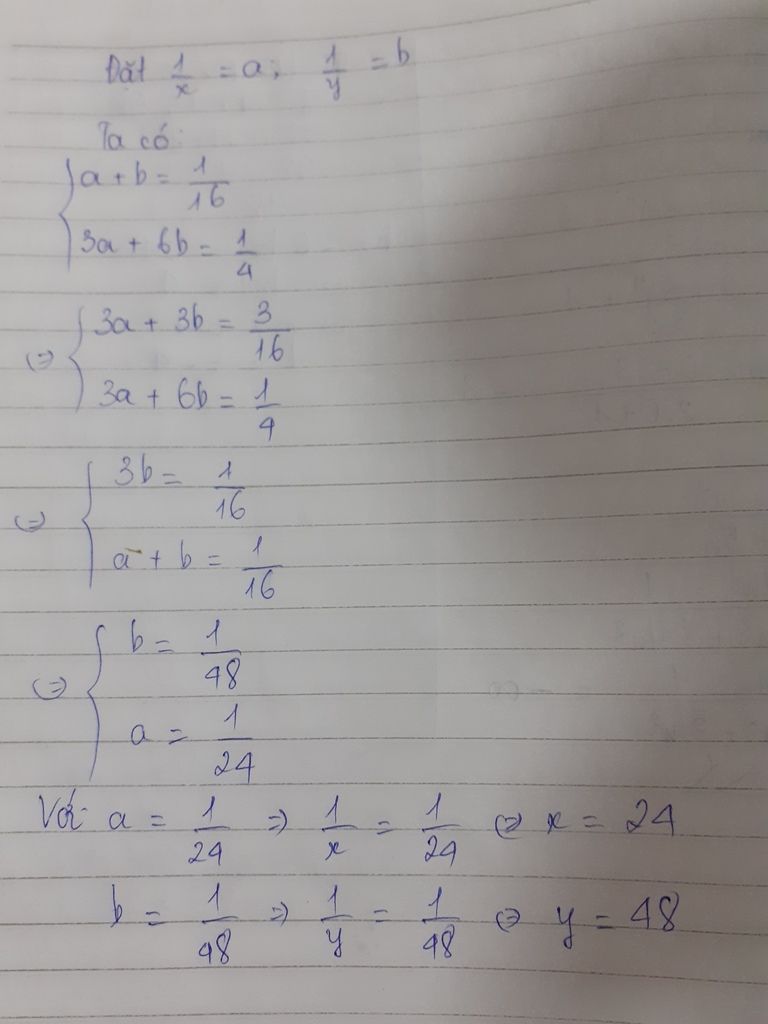 Đặt 1/x = a; 1/y = b
Ta có:
{ a + b = 1/16
3a + 6b = 1/4
(=) { 3a + 3b = 3/16
3a + 6b = 1/4
(=) { 3b = 1/16
a + b = 1/16
(=) { b = 1/48
a = 1/24
Với a = 1/24 => 1/x = 1/24 (=) x = 24
b = 1/48 => 1/y = 1/48 (=) y = 48